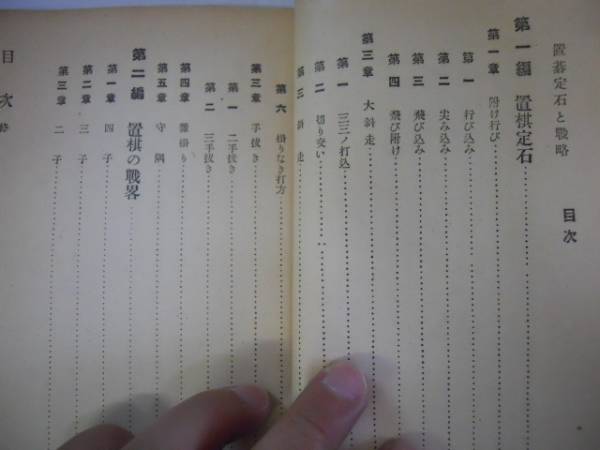 置碁定石と戦略
目次
第一編 置棋定石
第一章 附け行び
第一 行び込み
第二 尖み込み
第三 飛び込み
第四 飛び附け
第三章 大斜走
第一 三三ノ打込
第二 切り交い
第三 走
第六 掛りなき打方
第三章 手抜き
第一 二手抜き
第二 三手抜き
第四章 掛り
第五章 守隅
第二編 置棋の戦畧
第一章 四子
第二章 三子
第三章 二子
目次終